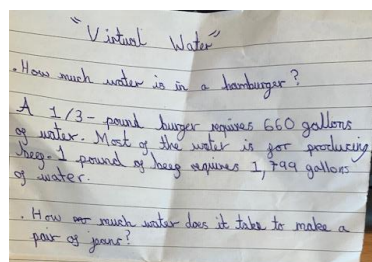 "Virtual Water"
. How much water is in a hamburger?
A 1/3 - pound burger requires 660 gallons
of water. Most of the water is for producing
beef. 1 pound of beef requires 1,799 gallons
of water.
. How much water does it take to make a
pair of jeans?